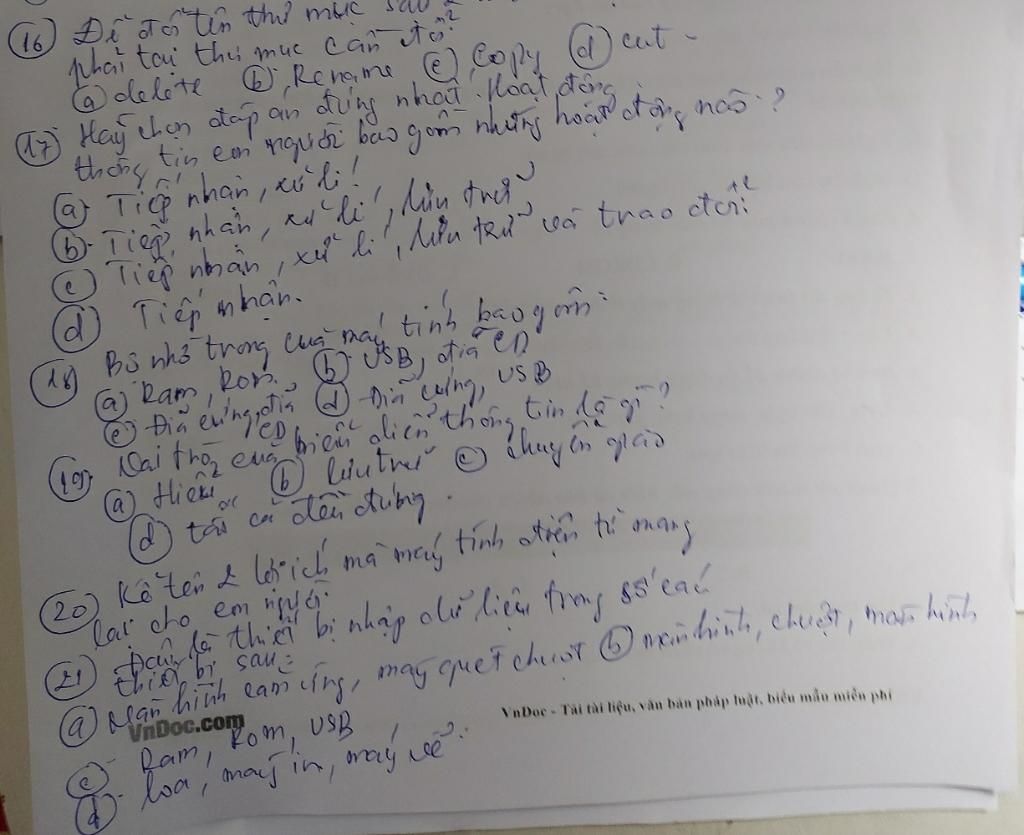 16 Để đổi tên thư mục sau
phải tại thư mục cần đổi
a delete b, Rename c, copy d cut -
17 Hãy chọn đáp án đúng nhất. Hoạt động
thông tin con người bao gồm những hoạt động nào?
a Tiếp nhận, xử lí!
b. Tiếp nhận, xử lí, lưu trữ
c Tiếp nhận, xử lí, lưu trữ và trao đổi
d Tiếp nhận.
18 Bộ nhớ trong của máy tính bao gồm:
a) Ram, Rom. b) USB, đĩa CD
c) Đĩa cứng, đĩa CD d Đĩa cứng, USB
19) Vai trò của biểu diễn thông tin là gì?
a Hiểu b lưu trữ c chuyển giao
d tất cả đều đúng.
20 Kể tên 2 lợi ích mà máy tính điện tử mang
lại cho con người.
21 Đâu là thiết bị nhập dữ liệu trong số các
thiết bị sau:
a Màn hình cảm ứng, máy quét chuột b màn hình, chuột, màn hình
VnDoc.com
VnDoc - Tải tài liệu, văn bản pháp luật, biểu mẫu miễn phí
c Ram, Rom, USB
d. loa, máy in, máy vẽ.